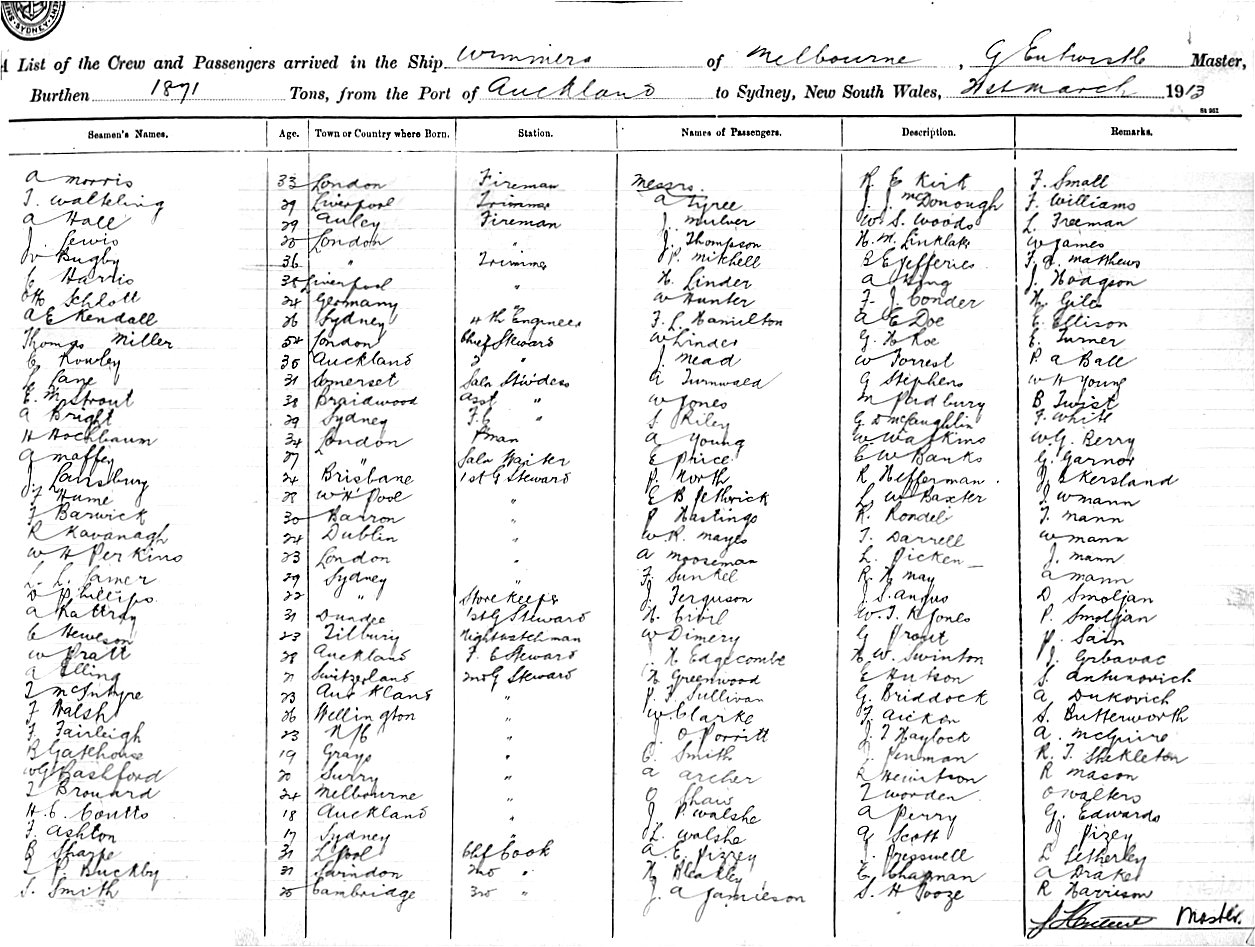 SYDNEY
A List of the Crew and Passengers arrived in the Ship Wimmera of Melbourne, G Entwistle Master,
Burthen 1871 Tons, from the Port of Auckland to Sydney, New South Wales, 31st March 1913
Seamen's Names. Age. Town or Country where Born. Station. Names of Passengers. Description. Remarks.
A Morris 33 London Fireman Messrs. R. E Kirk F. Small
T. Walkling 29 Liverpool Trimmer A Tyree J. J. McDonough F. Williams
A Hall 29 Auley Fireman J. Mulver W. S. Woods L. Freeman
J. Lewis 20 London " J. Thompson H. M. Linklate W James
W Bugby 36 " Trimmer J P. Mitchell B E Jefferies F. J. Matthews
C Harris 35 Liverpool " H. Linder A King J. Hodgson
Schlott 24 Germany " W Hunter F. J. Conder H. Giles
A E Kendall 26 Sydney 4th Engineer F. L. Hamilton A E Doe E. Ellison
Thomas Miller 54 London Chief Steward W Linder G. H Roe E. Turner
C Rowley 35 Auckland 2 " J. Mead W Forrest P. A Ball
L Lane 31 Somerset Saln Stwdess G Turnwald G Stephens W H Young
E. M Strout 38 Braidwood Asst " W Jones M Padbury B Twist
A Bright 29 Sydney F. C " S Riley G. D McLaughlin F. White
H Hochbaum 34 London Pman A Young W Watkins W. G. Berry
A Maffey 27 " Saln Waiter E Price E W Banks G. Garnor
J. Lansbury 24 Brisbane 1st G Steward P. North R Hefferman. J. Ekersland
F Hume 28 W H Pool " E B Pethrick L. W Baxter J. W Mann
F Barwick 30 Barron " P Hastings R. Rondel T. Mann
R Kavanagh 24 Dublin " W R. Mayes T. Darrell W Mann
W H Perkins 23 London " A Mooseman L. Picken J. Mann
L. L. Lamer 29 Sydney " F. Sunkel R. H May A Mann
D Phillips 22 " Storekeeper J. Ferguson J. S. Angus D Smoljan
A Rattray 31 Dundee 1st G Steward H. Civil W. T. R Jones P. Smoljan
C Heweson 23 Tilbury Nightwatchman W Dimery G Prout P. Sain
W Pratt 28 Auckland F. C Steward J. H Edgecombe H W. Swinton J. Grbavac
A Elling 21 Switzerland 2nd G Steward H Greenwood E Hutson S. Antunovich
T McIntyre 23 Auckland " P. J Sullivan G. Briddock A Dukovich
F Walsh 26 Wellington " W Clarke F. Aicken S. Butterworth
F. Fairleigh 23 " J. O Porritt J. T Haylock A. McGuire
B Gatehouse 19 Grays " C. Smith J. Penman R. T. Shekleton
W G Bashford 20 Surry " A Archer R Hewitson R Mason
T Brouard 24 Melbourne " O Shaw T Worden O Walters
H. C. Coutts 18 Auckland " J. P. Walshe A Perry G. Edwards
F. Ashton 17 Sydney " L. Walshe G Scott J Pizey
B Sharpe 31 L pool Chf Cook A. E. Pizzey T. Presswell L Letherley
T P Buckby 31 Swindon 2nd " H Bleakley E. Chapman A Drake
S. Smith 25 Cambridge 3rd " J. A Jamieson S. H Tooze R Harrison
Master.